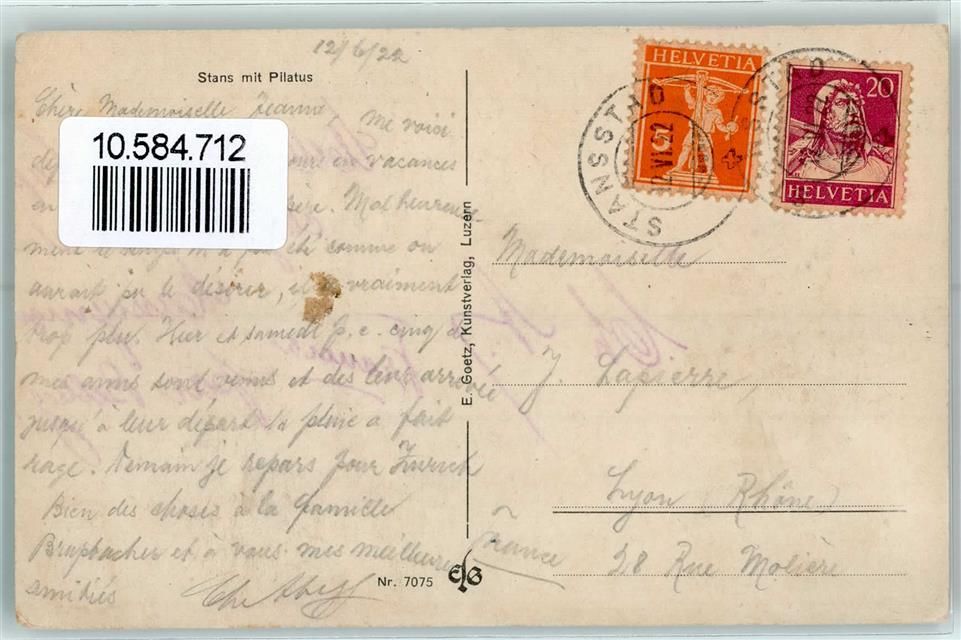 12/6/22
Stans mit Pilatus
Chère Mademoiselle Jeanne, me voici
10.584.712
en vacances
Malheureuse-
ment le temps n'a pas été comme on
aurait pu le désirer, il a vraiment
trop plu. Hier et samedi p. c. cinq de
mes amis sont venus et dès leur arrivée
jusqu'à leur départ la pluie a fait
rage. Demain je repars pour Zurich
Bien des choses à la famille
Brupbacher et à vous mes meilleures
amitiés
Nr. 7075
E. Goetz, Kunstverlag, Luzern
HELVETIA
5
20
HELVETIA
STANSSTAD
Mademoiselle
J. Lapierre
Lyon (Rhône)
28 Rue Molière
France